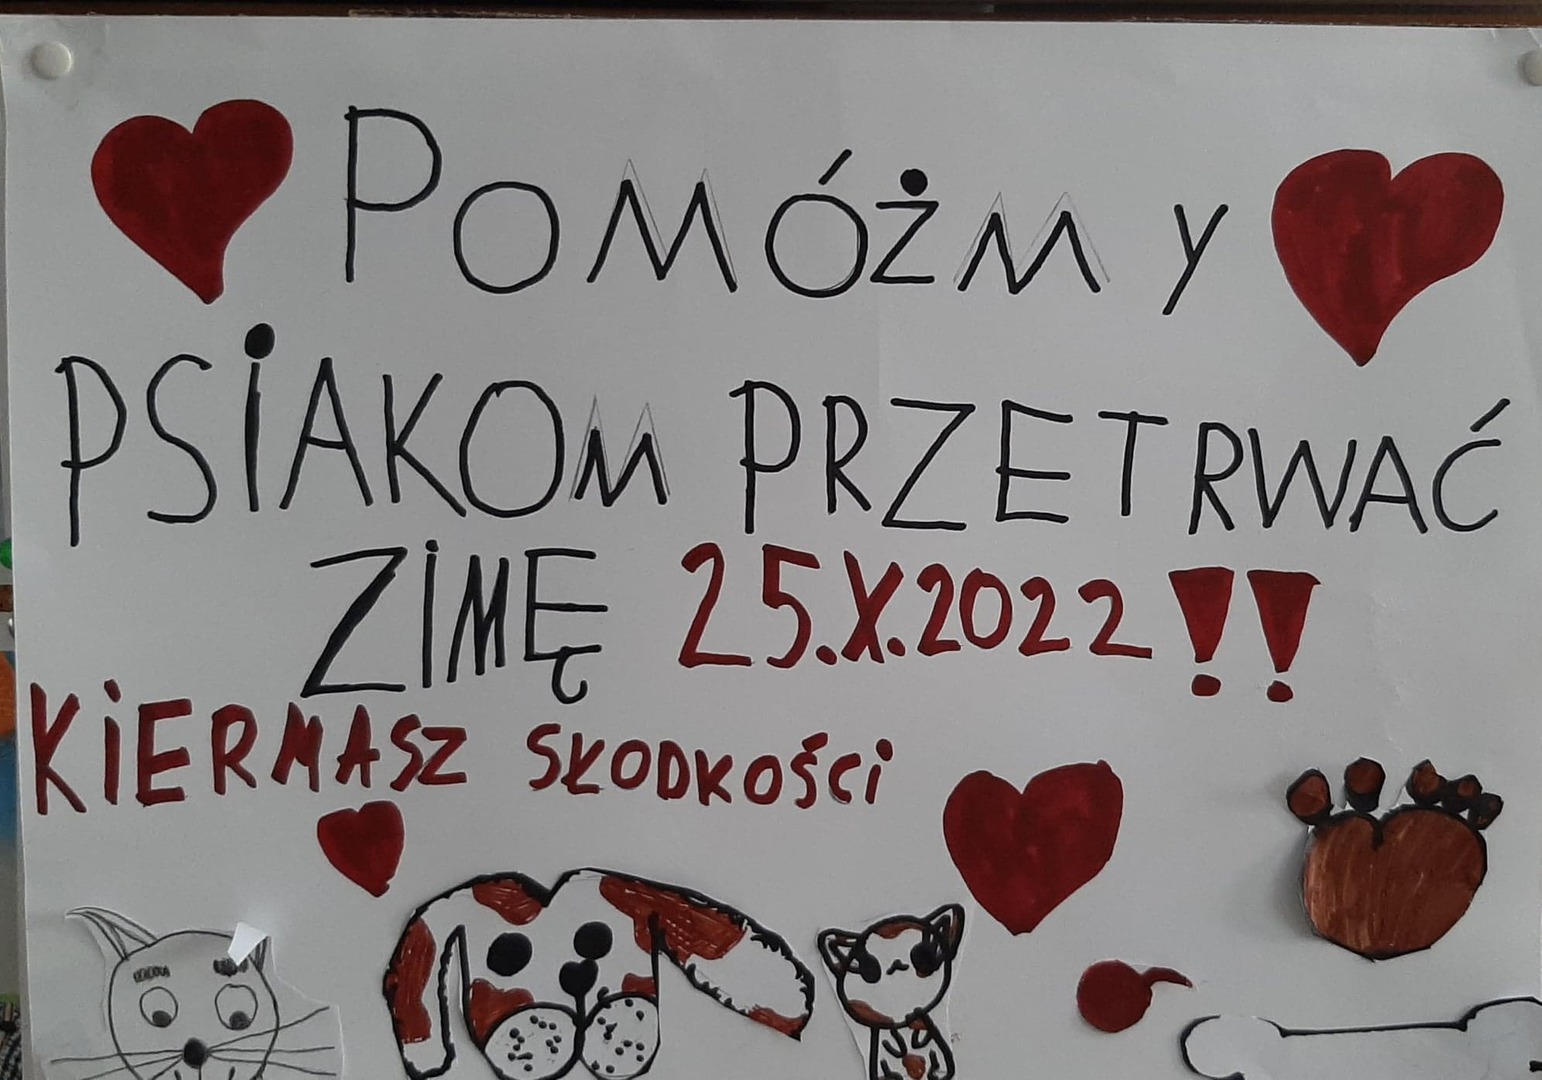 POMÓŻMY
PSIAKOM PRZETRWAĆ
ZIMĘ 25.X.2022!!
KIERMASZ SŁODKOŚCI